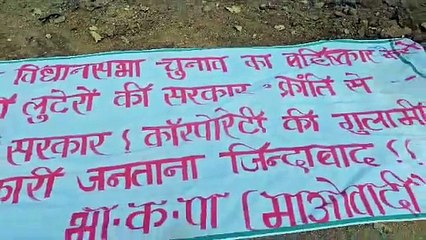 विधानसभा चुनाव का बहिष्कार
लुटेरों की सरकार क्रांति से
सरकार ! कॉरपोरेटी की गुलामी
कारी जनताना जिन्दाबाद !!
भा·क·पा (माओवादी